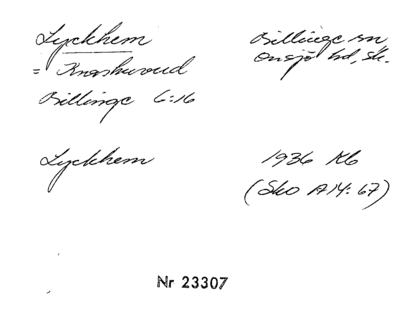 Lyckhem
Billinge sn
=
Onsjö hd, Sk.
Billinge 6:16
Lyckhem
1936 Kb
(Sko A14:67)
Nr 23307